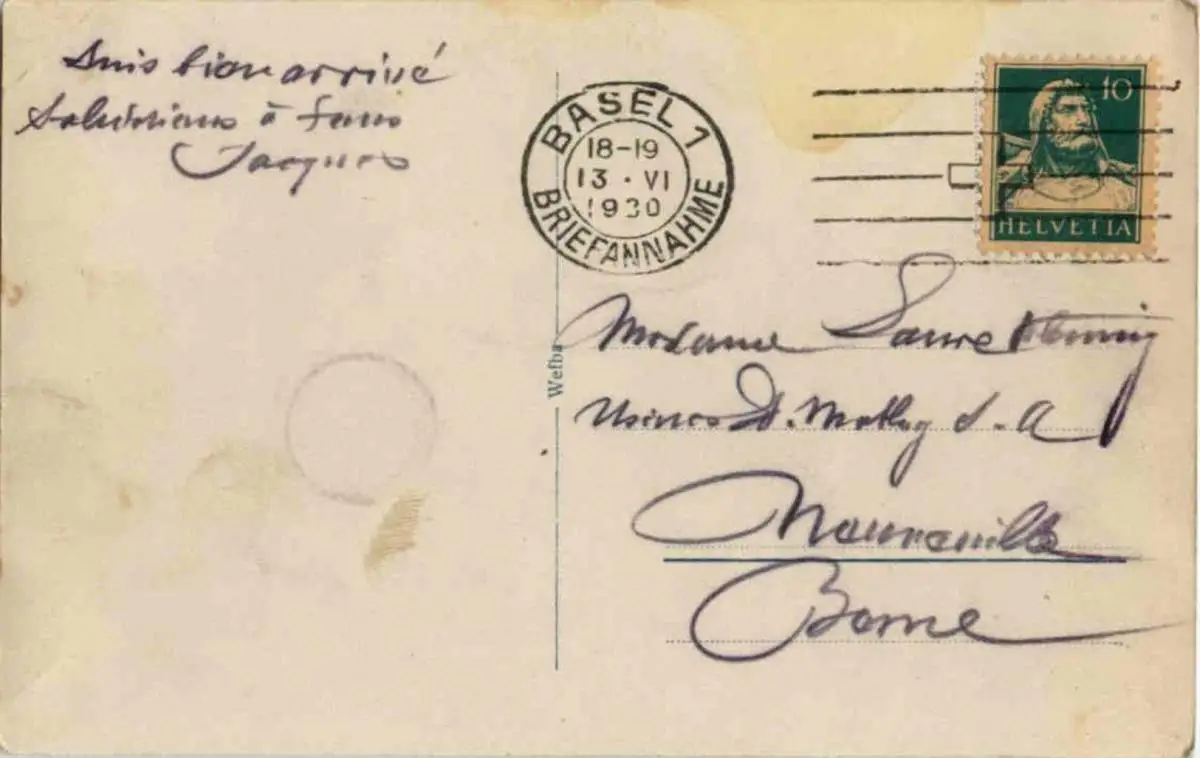 Suis bien arrivé
Salutations à tous
Jacques
BASEL 1
18-19
13 · VI
1930
BRIEFANNAHME
10
HELVETIA
Wefba
Madame Laure
Usines S. A
Berne